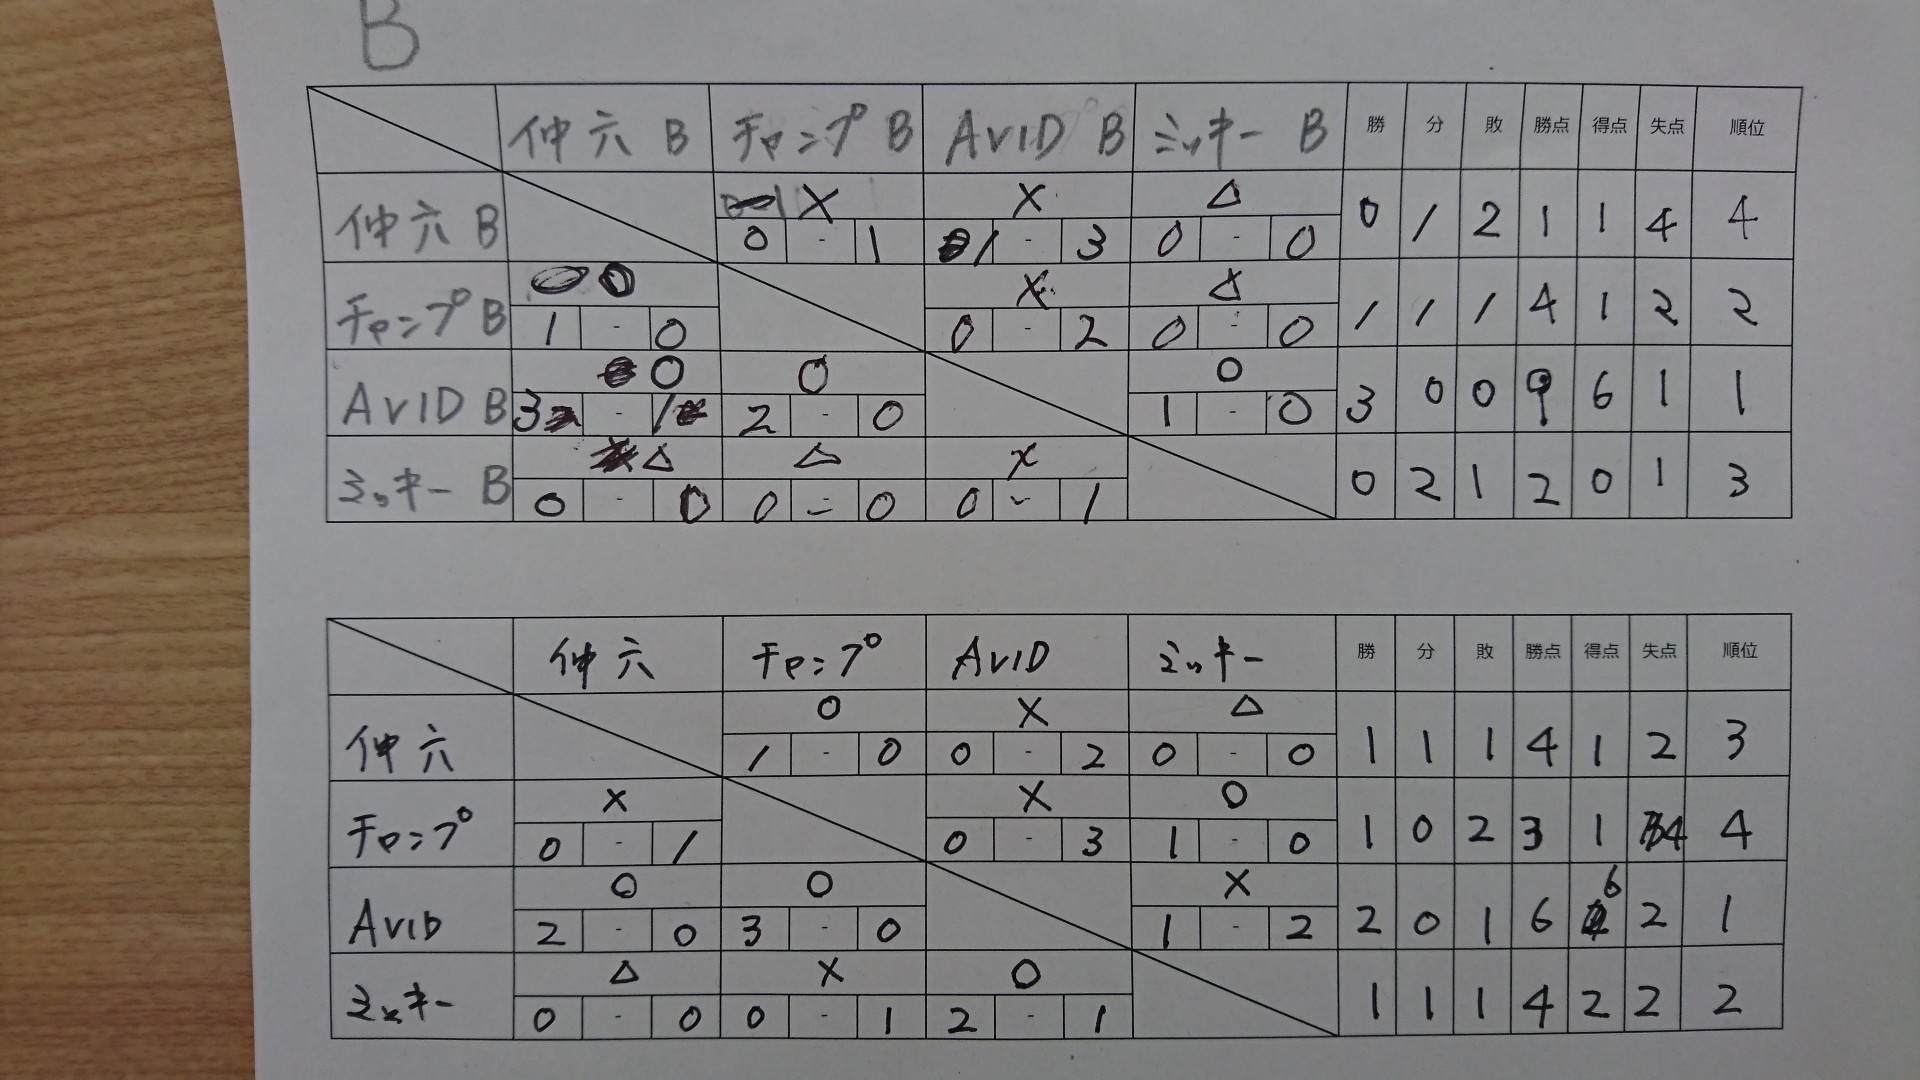 B
仲六 B チャンプ B AVID B ミッキー B 勝 分 敗 勝点 得点 失点 順位
× × △
仲六 B 0 - 1 1 - 3 0 - 0 0 1 2 1 1 4 4
○ × △
チャンプ B 1 - 0 0 - 2 0 - 0 1 1 1 4 1 2 2
○ ○ ○
AVID B 3 - 1 2 - 0 1 - 0 3 0 0 9 6 1 1
△ △ ×
ミッキー B 0 - 0 0 - 0 0 - 1 0 2 1 2 0 1 3
仲六 チャンプ AVID ミッキー 勝 分 敗 勝点 得点 失点 順位
○ × △
仲六 1 - 0 0 - 2 0 - 0 1 1 1 4 1 2 3
× × ○
チャンプ 0 - 1 0 - 3 1 - 0 1 0 2 3 1 4 4
○ ○ ×
AVID 2 - 0 3 - 0 1 - 2 2 0 1 6 6 2 1
△ × ○
ミッキー 0 - 0 0 - 1 2 - 1 1 1 1 4 2 2 2